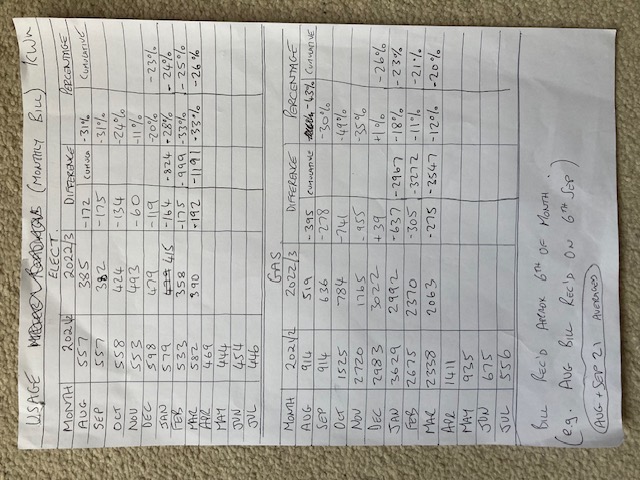 USAGE (MONTHLY BILL) KWh
ELECT.
MONTH 2021/2 2022/3 DIFFERENCE PERCENTAGE
AUG 557 385 -172 CUMULA -31% CUMULATIVE
SEP 557 382 -175 -31%
OCT 558 424 -134 -24%
NOV 553 493 -60 -11%
DEC 598 479 -119 -20% -23%
JAN 579 415 -164 -824 -28% -24%
FEB 533 358 -175 -999 -33% -25%
MAR 582 390 -192 -1191 -33% -26%
APR 469
MAY 444
JUN 454
JUL 446
GAS
MONTH 2021/2 2022/3 DIFFERENCE PERCENTAGE
AUG 914 519 -395 CUMULATIVE -43% CUMULATIVE
SEP 914 636 -278 -30%
OCT 1525 784 -741 -49%
NOV 2720 1765 -955 -35%
DEC 2983 3022 +39 +1% -26%
JAN 3629 2992 -637 -2967 -18% -23%
FEB 2675 2370 -305 -3272 -11% -21%
MAR 2338 2063 -275 -3547 -12% -20%
APR 1411
MAY 935
JUN 675
JUL 556
BILL REC'D APPROX 6TH OF MONTH.
(e.g. AUG BILL REC'D ON 6TH SEP)
(AUG + SEP 21 AVERAGED)